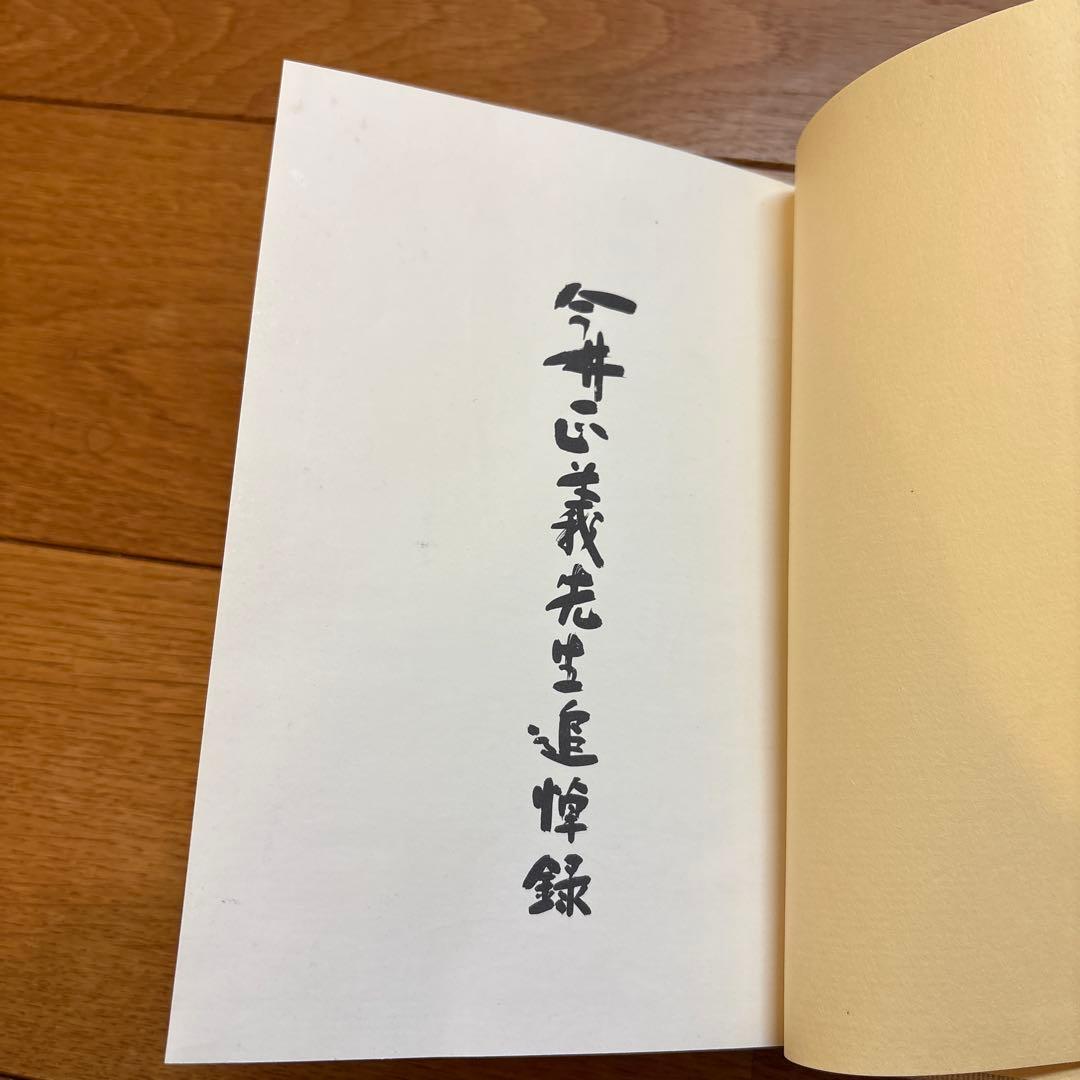 今井正義先生追悼録